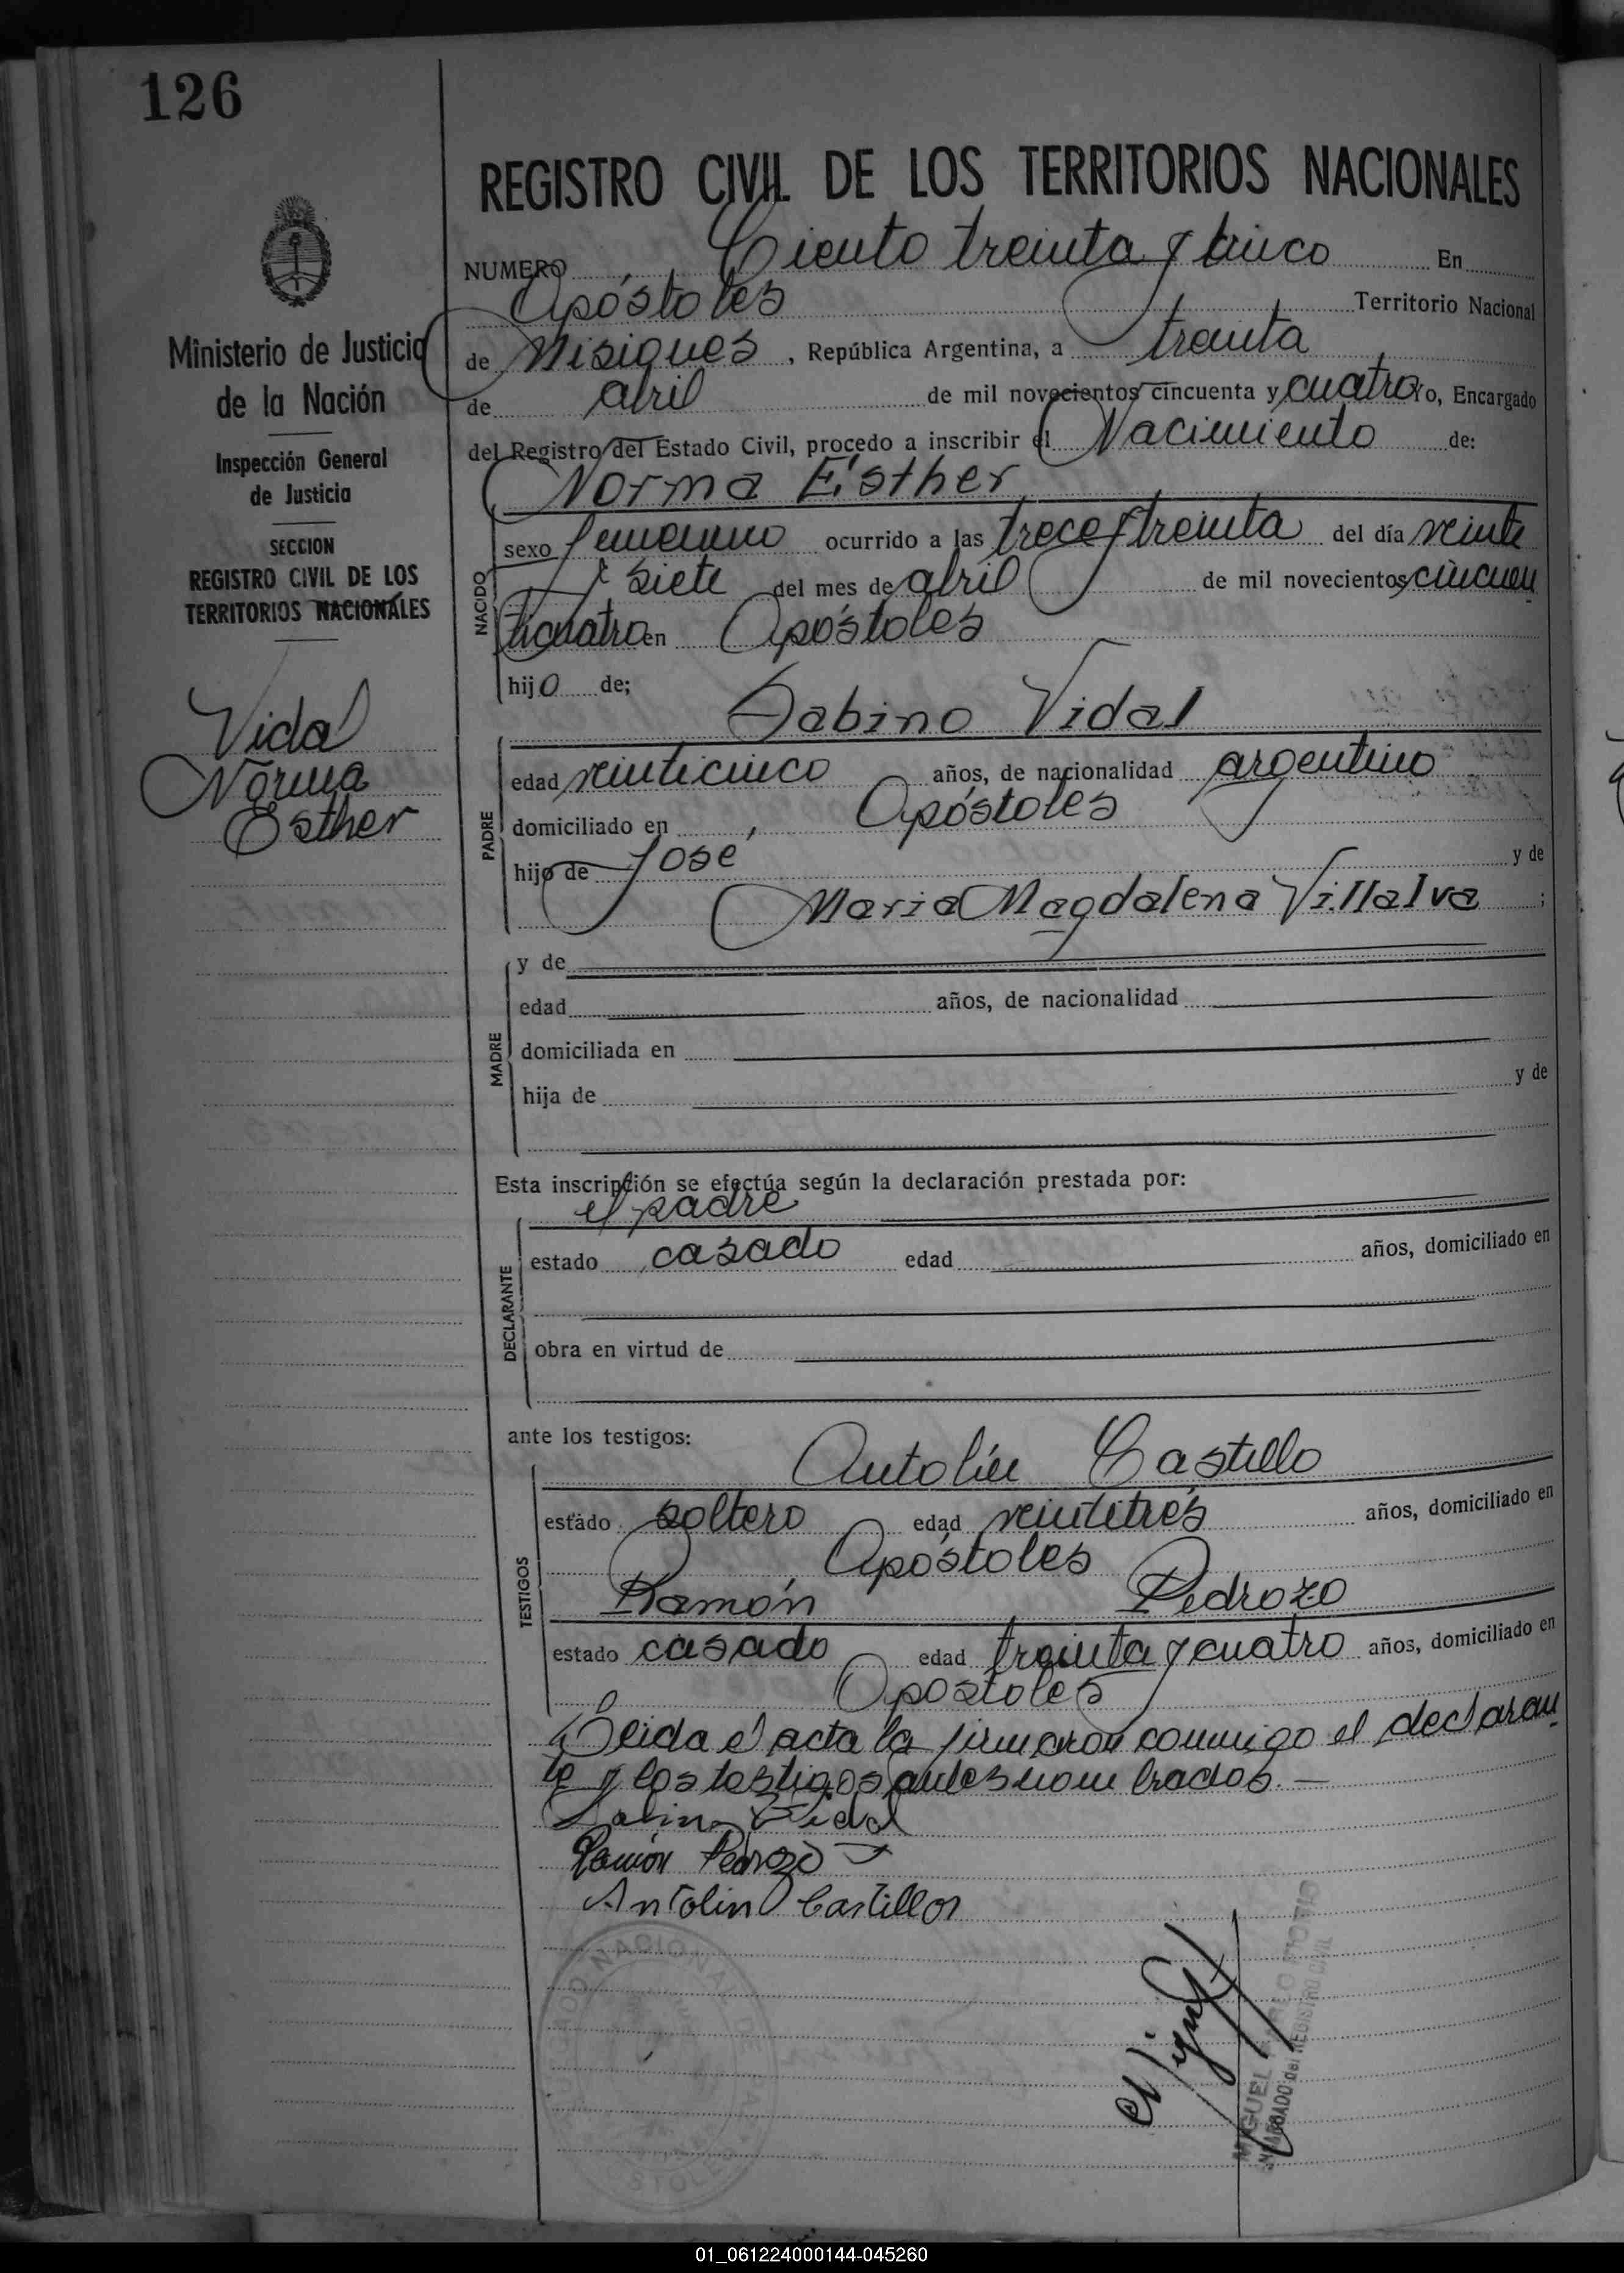 126
REGISTRO CIVIL DE LOS TERRITORIOS NACIONALES
NUMERO Ciento treinta y cinco En
Apóstoles Territorio Nacional
de Misiones, República Argentina, a treinta
de abril de mil novecientos cincuenta y cuatro Yo, Encargado
del Registro del Estado Civil, procedo a inscribir el Nacimiento de:
Norma Esther
NACIDO
sexo femenino ocurrido a las trece y treinta del día veinte
y siete del mes de abril de mil novecientos cincuen
ticuatro en Apóstoles
hijo de;
Sabino Vidal
PADRE
edad veinticinco años, de nacionalidad argentino
domiciliado en Apóstoles
hijo de José y de
Maria Magdalena Villalva ;
MADRE
y de
edad años, de nacionalidad
domiciliada en
hija de y de
Esta inscripción se efectúa según la declaración prestada por:
el padre
DECLARANTE
estado casado edad años, domiciliado en
obra en virtud de
ante los testigos:
Antolín Castillo
TESTIGOS
estado soltero edad veintitrés años, domiciliado en
Apóstoles
Ramón Pedrozo
estado casado edad treinta y cuatro años, domiciliado en
Apostoles
Leida el acta la firmaron conmigo el declaran
te y los testigos antes nombrados. —
Sabino Vidal
Ramón Pedrozo
Antolin Castillo
MIGUEL
ENCARGADO del REGISTRO CIVIL
Ministerio de Justicia
de la Nación
Inspección General
de Justicia
SECCION
REGISTRO CIVIL DE LOS
TERRITORIOS NACIONALES
Vidal
Norma
Esther
01_061224000144-045260